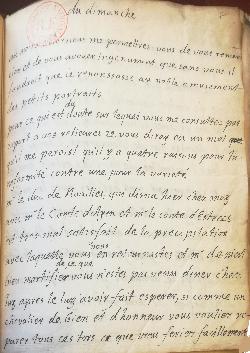 du dimanche
me permettrez vous de vous remer
cier et de vous avouer ingenument que sans vous il
faudroit que je renonçasse au noble amusement
des petits portraits
pour ce qui est du doute sur lequel vous me consultez par
raport a vos reliures je vous diray en un mot que
il me paroist qu'il y a quatre raisons pour l'u
niformité contre une pour la varieté
le duc de Noailles que disna hier chez moy
avec mr le Comte d'Ayen et mr le conte d'Estrées
est tres mal satisfait de la precipitation
avec laquelle vous vous en retournastes et mr de
bien mortifié de ce que vous n'estes pas venus diner chez
luy apres le luy avoir fait esperer, si comme un
chevalier de bien et d'honneur vous voulier re
parer tous ces torts ce que vous feriez facillement